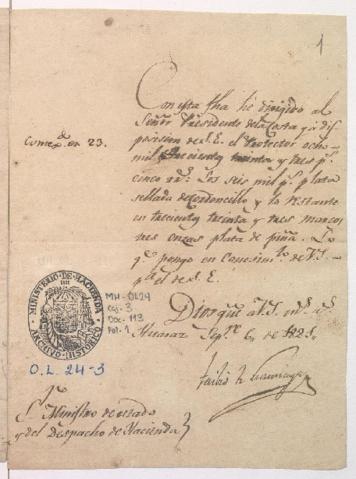 1
Con esta fha he dirigido al
Señor Presidente de la Costa y a dis
posicion de S. E. el Protector ocho
mil trecientos treinta y tres p.s
cinco rr.s Los seis mil p.s plata
sellada de Cordoncillo y la restante
en trecientos treinta y tres marcos
tres onzas plata de piña. Lo
q.e pongo en Conosim.to de V.S.
p.a el de S. E.
Dios gũe a V.S. m.s a.s
Huaraz Sep.re 6, de 1821.
Contex.do en 23.
MINISTERIO DE HACIENDA
ARCHIVO HISTORICO
MH-OL24
Caj. 3
Doc. 113
Fol. 1
O.L. 24-3
S.r Ministro de estado
y del Despacho de Hacienda